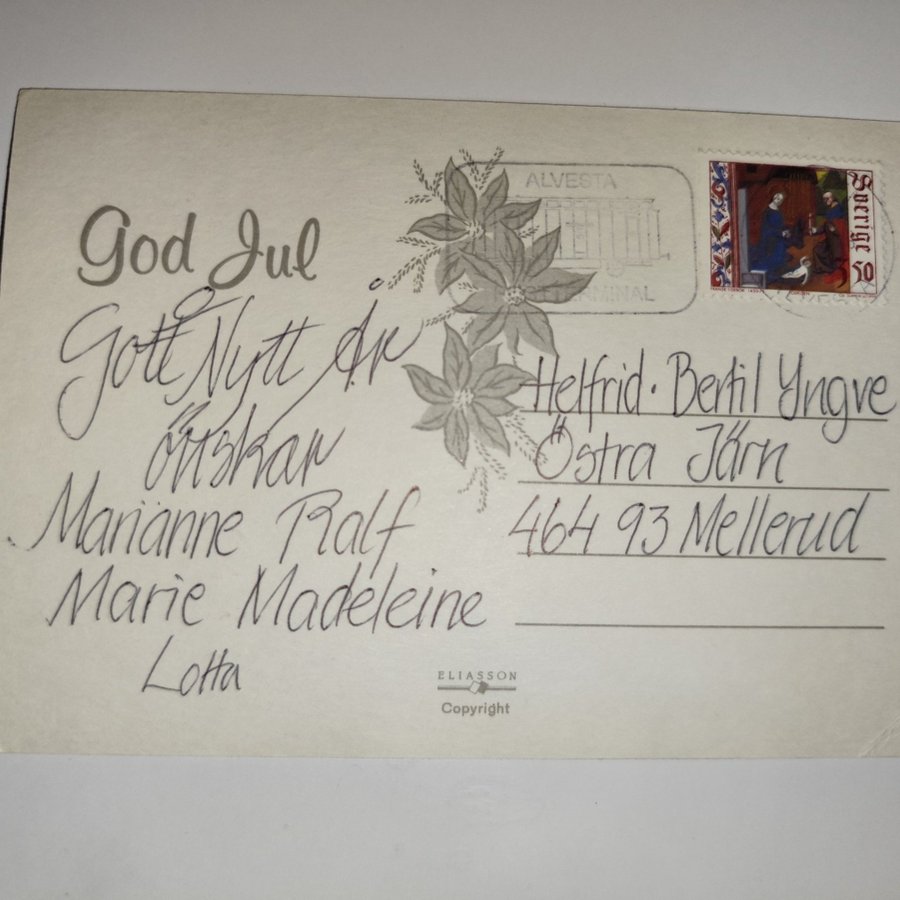 God Jul
Gott Nytt År
Önskar
Marianne Ralf
Marie Madeleine
Lotta
ALVESTA
TERMINAL
Sverige
50
Helfrid. Bertil Yngve
Östra Järn
464 93 Mellerud
ELIASSON
Copyright